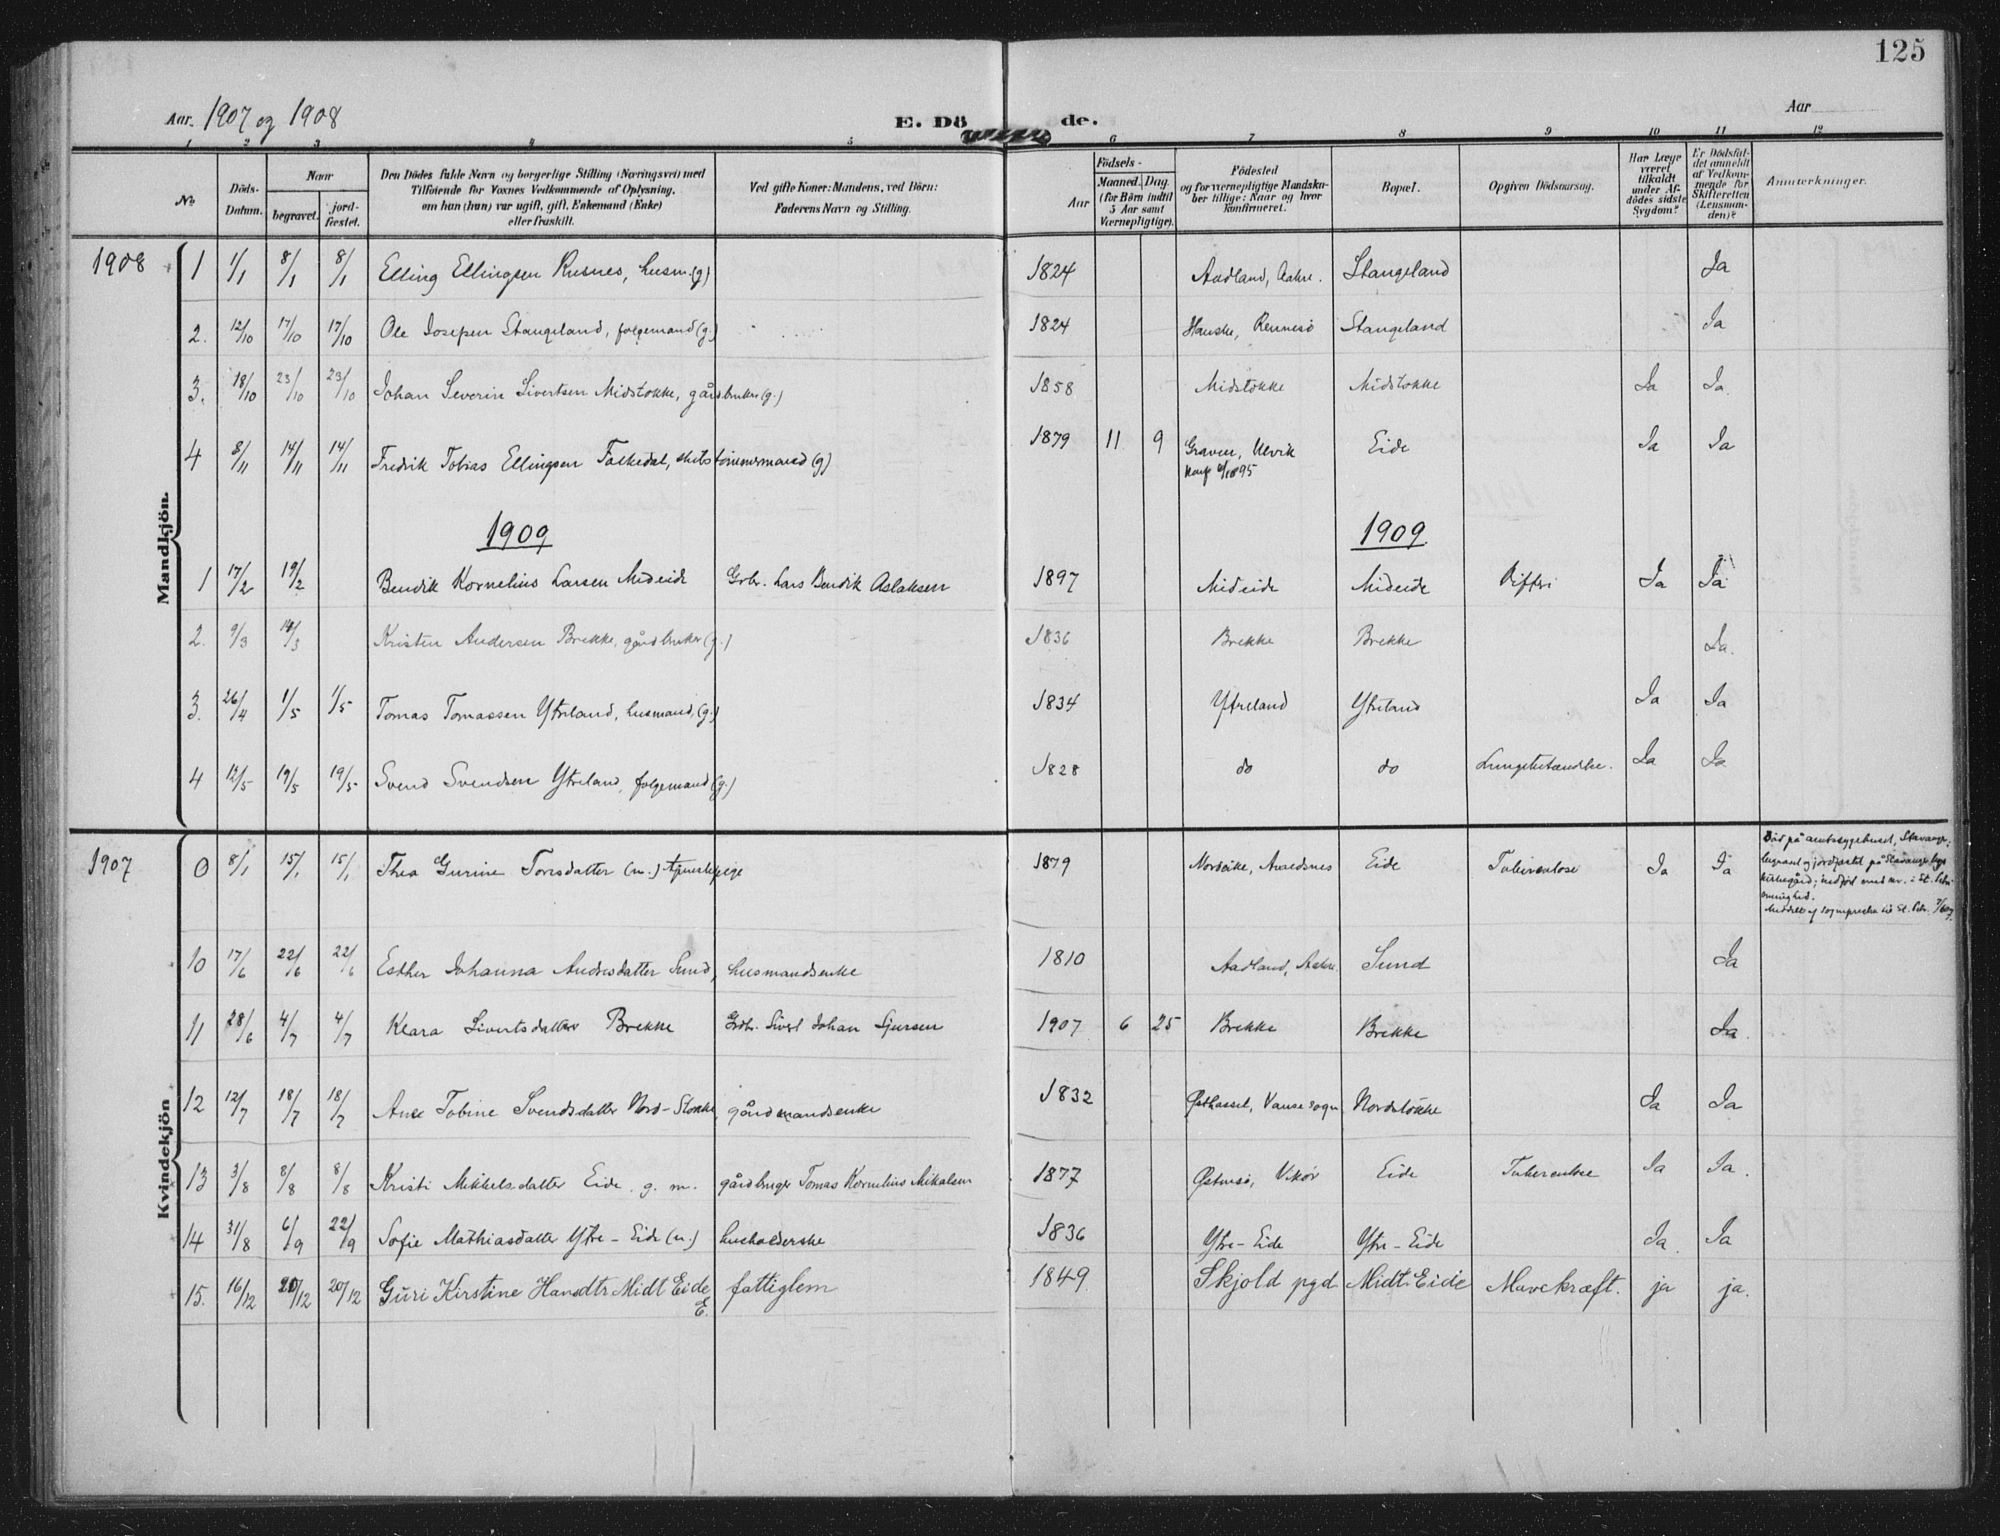 125
Aar. 1907 og 1908
E. Dö de.
Aar
1 2 3 4 5 6 7 8 9 10 11 12
No
Döds-Datum.
Naar
begravet.
jord-fæstet.
Den Dödes fulde Navn og borgerlige Stilling (Næringsvei) med
Tilföiende for Voxnes Vedkommende af Oplysning,
om han (hun) var ugift, gift, Enkemand (Enke)
eller fraskilt.
Ved gifte Koner: Mandens, ved Börn:
Faderens Navn og Stilling.
Födsels-
Aar
Maaned. Dag.
(for Börn indtil
5 Aar samt
Værnepligtige).
Födested
og for værnepligtige Mandska-
ber tillige: Naar og hvor
konfirmeret.
Bopæl.
Opgiven Dödsaarsag.
Har Læge
været
tilkaldt
under Af-
dödes sidste
Sygdom?
Er Dödsfal-
det anmeldt
af Vedkom-
mende for
Skifteretten
(Lensman-
den)?
Anmærkninger.
Mandkjön.
1908 1 1/1 8/1 8/1 Elling Ellingsen Kusnes, husm. (g) 1824 Aadland, Aakre. Stangeland Ja
2. 12/10 17/10 17/10 Ole Josepsen Stangeland, folgemand (g.) 1824 Hauske, Rennesö Stangeland Ja
3. 18/10 23/10 23/10 Johan Severin Sivertsen Midstokke, gårdbruker (g.) 1858 Midstokke Midstokke Ja Ja.
4 8/11 14/11 14/11 Fredrik Tobias Ellingsen Falkedal, skibstömmermand (g) 1879 11 9 Graven, Ulvik Eide Ja Ja
1909 1909.
1 17/2 19/2 Bendik Kornelius Larsen Mideide Grbr. Lars Bendik Aslaksen 1897 Mideide Mideide Difteri Ja Ja
2. 9/3 14/3 Kristen Andersen Brekke, gårdbruker (g.) 1836 Brekke Brekke Ja.
3. 26/4 1/5 1/5 Tomas Tomassen Ytreland, husmand, (g.) 1834 Ytreland Ytreland Ja Ja
4 12/5 19/5 19/5 Svend Svendsen Ytreland, folgemand (g.) 1828 do do Lungebetændelse. Ja Ja
Kvindekjön
1907 0 8/1 15/1 15/1 Thea Gurine Torisdatter (u.) tjenestepige 1879 Nordvike, Avaldsnes Eide Tuberculose Ja Ja Död på amtssygehuset, Stavanger;
begravet og jordfæstet på Stavanger
kirkegård; indført med nr. i St. Petri
menighed.
10 17/6 22/6 22/6 Esther Johanna Andresdatter Sund, husmandsenke 1810 Aadland, Aakre. Sund Ja
11 28/6 4/7 4/7 Klara Sivertsdatter Brekke Grdbr. Sivert Johan Sjursen 1907 6 25 Brekke Brekke Ja.
12 12/7 18/7 18/7 Ane Tobine Svendsdatter Nord-Stokke, gårdmandsenke 1832 Østhassel, Vanse sogn Nordstokke Ja Ja
13 3/8 8/8 8/8 Kristi Mikkelsdatter Eide. g. m. gårdbruger Tomas Kornelius Mikalsen 1877 Østensö, Vikör Eide Tuberculose Ja Ja.
14 31/8 6/9 22/9 Sofie Mathiasdatter Ytre-Eide (u.) husholderske 1836 Ytre-Eide Ytre-Eide Ja. Ja
15. 16/12 20/12 20/12 Guri Kirstine Hansdtr Midt Eide E. fattiglem 1849 Skjold pgd Midt-Eide Mavekræft. ja ja.